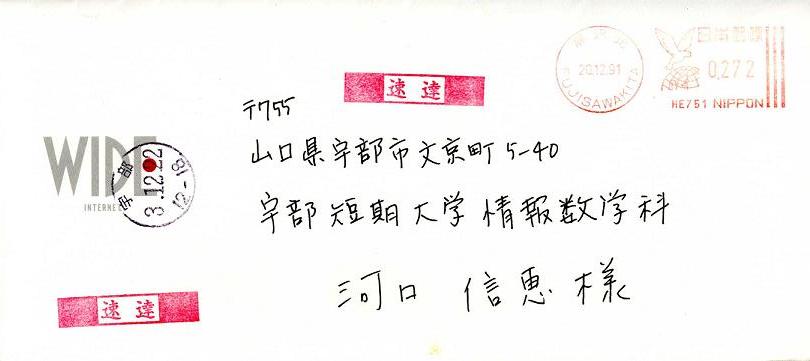 藤沢北
20.12.91
FUJISAWAKITA
日本郵便
0,272
HE751 NIPPON
速達
〒755
山口県宇部市文京町5-40
宇部短期大学情報数学科
河口 信恵 様
WIDE
INTERNET
宇部
3.12.22
12-18
速達